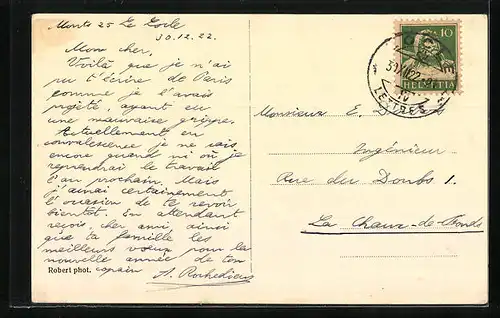 Monts 25 Le Locle
30.12.22
Mon cher,
Voilà que je n'ai
pu t'écrire de Paris
comme je l'avais
projeté, ayant eu
une mauvaise grippe.
Actuellement en
convalescence je ne sais
encore quand ni où je
reprendrai le travail
l'an prochain. Mais
j'aurai certainement
l'occasion de te revoir
bientôt. En attendant
reçois, cher ami ainsi
que ta famille les
meilleurs vœux pour la
nouvelle année de ton
copain
Robert phot.
10
HELVETIA
LETTRES
Monsieur E.
Ingénieur
Rue du Doubs 1.
La Chaux-de-Fonds